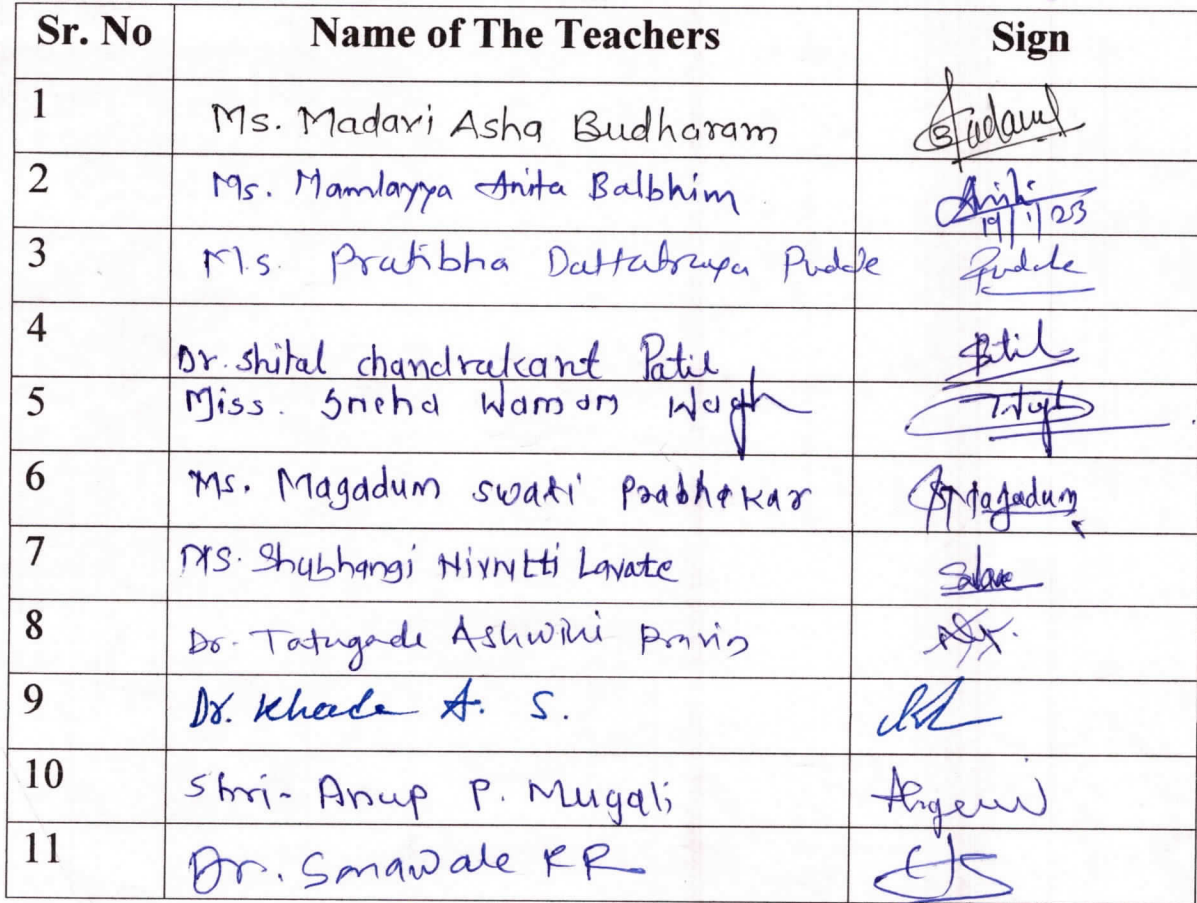 Sr. No Name of The Teachers Sign
1 Ms. Madavi Asha Budharam
2 Ms. Mamlayya Anita Balbhim
19/1/23
3 Ms. Pratibha Dattatraya Pudde Pudde
4 Dr. Shital chandrakant Patil Patil
5 Miss. Sneha Waman Wagh Wagh
6 Ms. Magadum swati Prabhakar Magadum
7 Ms. Shubhangi Nivrutti Lavate
8 Dr. Tatugade Ashwini Pravin
9 Dr. Khade A. S.
10 Shri- Anup P. Mugali
11 Dr. Sonawale RR